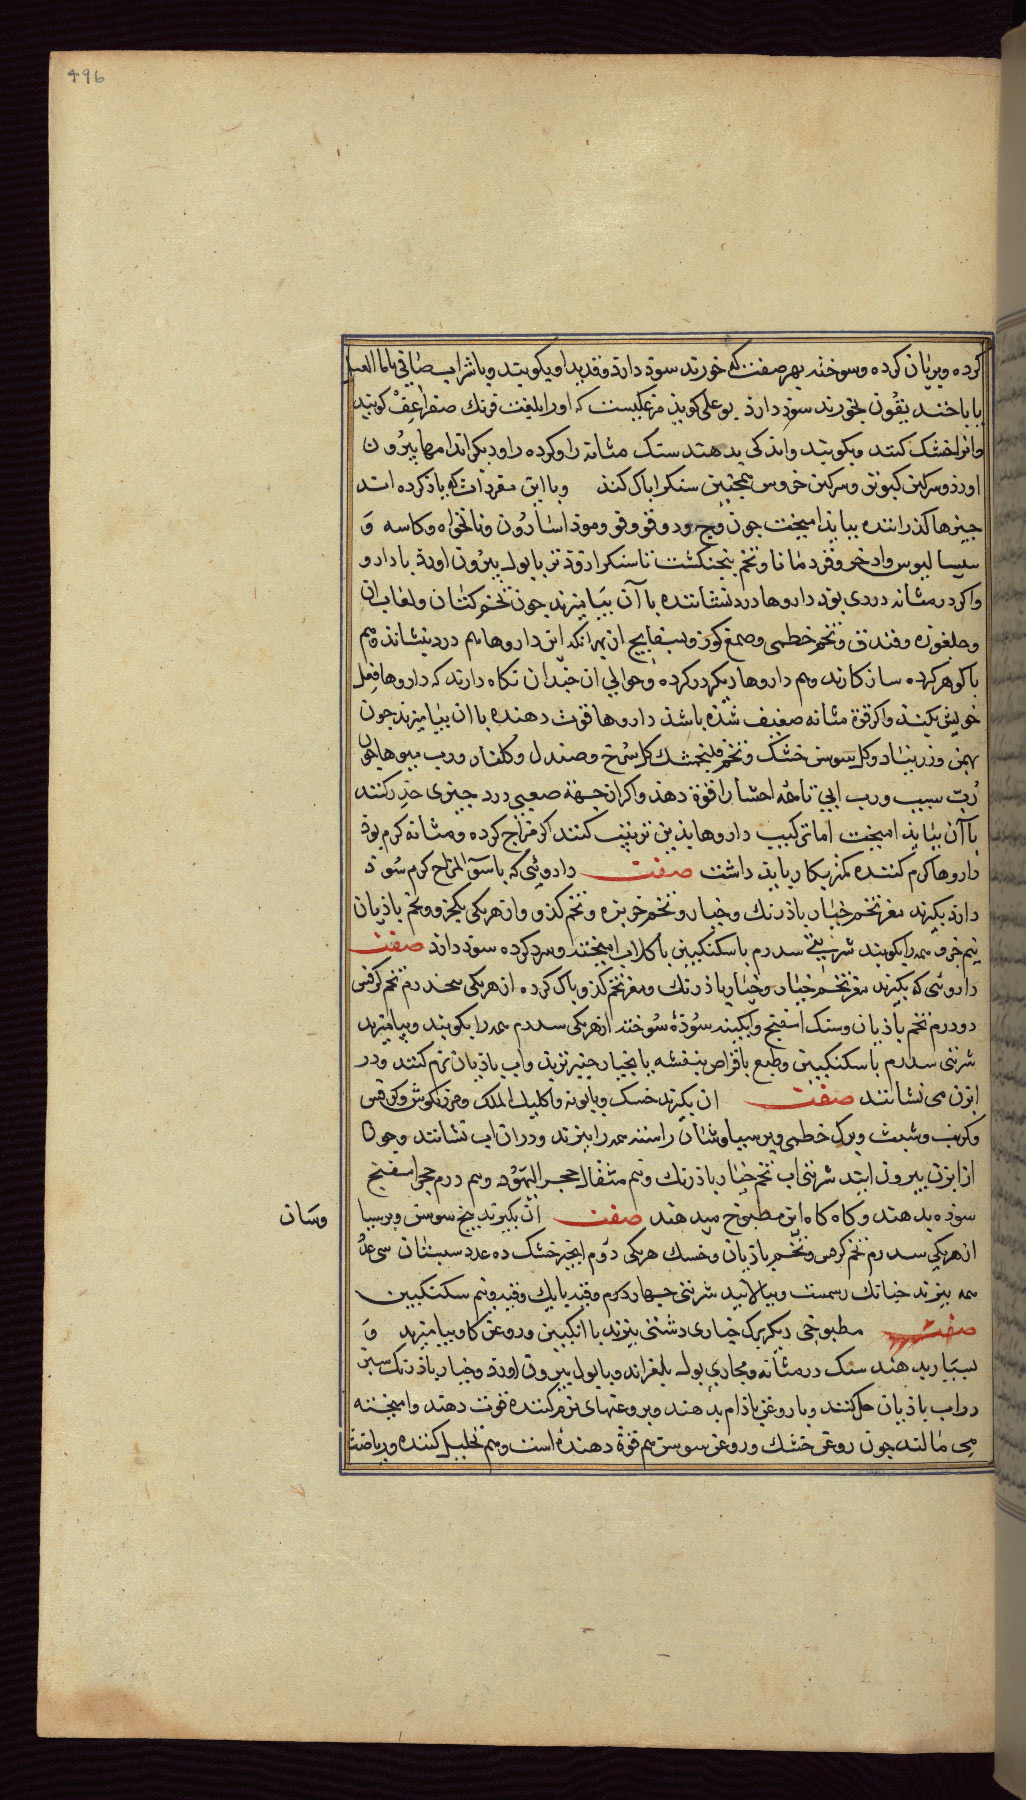 496
کرده و بریان کرده و سوخته بهر صفت که خورند سوذ دارذ و قدید او بکوبند و با شراب صافی یا ماء العسل
یا با خندیقون بخورند سوذ دارذ بوعلی کویذ مرغکیست که او را بلغت فرنک صفراغون کویند
و انرا خشک کنند و بکوبند و اندکی بدهند سنک مثانه را و کرده را و دیکر اندامها بیرون
اورذ و سرکین کبوتر و سرکین خروس همچنین سنک را پاک کنذ و با این مفردات که یاذ کرده اند
چیزها کذراننده ببایذ امیخت چون وج و دوقو و فو و مو و اسارون و نانخواه و کاسه و
سیسالیوس و اذخر و قردمانا و تخم پنجنکشت تا سنک را زوذتر با بول بیرون اورذ با دارو
و اکر در مثانه دردی بوذ داروها درد نشاننده با آن بیامیزند چون تخم کتان و لعاب ان
و جلغوزه و فندق و تخم خطمی و صمغ کوز و بسفایج از بهر انکه این داروها هم درد بنشانذ و هم
با کوهر کرده سازکارند و هم داروها دیکر در کرده و حوالی ان چندان نکاه دارند که داروها فعل
خویش بکنذ و اکر قوة مثانه ضعیف شذه باشذ داروها قوت دهنده با ان بیامیزند چون
بهمن و زرنباد و کل سوسن خشک و تخم فلنجمشک کل سرخ و صندل و کلنار و رب میوها چون
رُبّ سیب و رب ابی تا همه احشا را قوة دهذ و اکر از جهت صعبی درد چیزی مخدر کنند
با آن ببایذ امیخت اما ترکیب داروها بذین ترتیب کنند اکر مزاج کرده و مثانه کرم بوذ
داروها کرم کننده کمتر بکار بایذ داشت صفت داروئی که با سوء المزاج کرم سوذ
دارذ بکیرند مغز تخم خیار باذرنک و خیار و تخم خربزه و تخم کذو و از هر یکی یکجزو و تخم باذیان
نیم جزو همه را بکوبند شربتی سه درم با سکنکبین با کلاب امیخته و سرد کرده سوذ دارذ صفت
داروئی که بکیرند مغز تخم خیار و خیار باذرنک و مغز تخم کذو پاک کرده از هر یکی پنجدرم تخم کرفس
دو درم تخم باذیان و سنک اسفنج و ابکینه سوذهٔ سوخته از هر یکی سه درم همه را بکوبند و بیامیزند
شربتی سه درم با سکنکبین و طبع باقراص بنفشه یا بخیار چنبر تر بذ و اب باذیان نرم کنند و در
ابزن می نشانند صفت ان بکیرند خسک و بابونه و اکلیل الملک و مرزنکوش و کرفس
و کرنب و شبث و برک خطمی و پرسیاوشان راستند همه را بپزند و در ان اب نشانند و چون
از ابزن بیرون ایند شربتی اب تخم خیار باذرنک و نیم مثقال حجر الیهود و نیم درم حجر اسفنج
سوذه بدهند و کاه کاه این مطبوخ میدهند صفت ان بکیرند بیخ سوسن و پرسیا
وسان
از هر یکی سه درم تخم کرفس و تخم باذیان و خسک هر یکی دوم انجیر خشک ده عدد سبستان سی عدد
همه بپزند چنانک رسمست و بپالایند شربتی چهار درم وقیه با یک وقیه و نیم سکنکبین
صفت مطبوخی دیکر برک خیاری دشتی بپزند با انکبین و روغن کاو بیامیزند و
بسیار بدهند سنک در مثانه و مجاری بول بلغزاند و با بول بیرون اورذ و خیار باذرنک سبز
در اب باذیان حل کنند و با روغن باذام بدهند و بروغنهای نرم کننده قوت دهند و امیخته
می مالند چون روغن خشک و روغن سوسن هم قوة دهنده است و هم تحلیل کننده و بریاضت